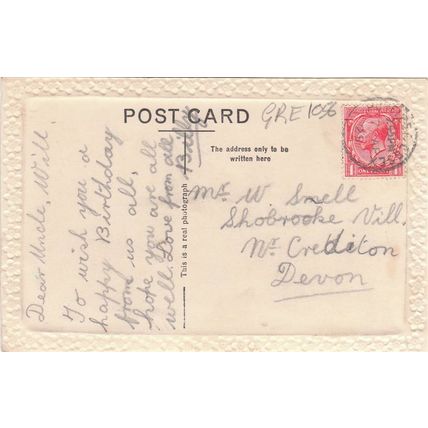 POST CARD
GRE 1086
The address only to be
written here
This is a real photograph
Dear Uncle, Will
To wish you a
happy Birthday
from us all,
hope you are all
well Love from all
Billy
Mr W. Snell
Shobrooke Vill.
Nr Crediton
Devon